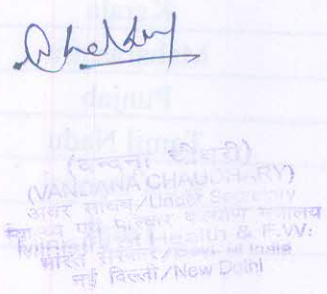 Kerala
Punjab
Tamil Nadu
(वन्दना चौधरी)
(VANDANA CHAUDHARY)
अवर सचिव/Under Secretary
स्वास्थ्य एवं परिवार कल्याण मंत्रालय
Ministry of Health & F.W.
भारत सरकार/Govt. of India
नई दिल्ली/New Delhi